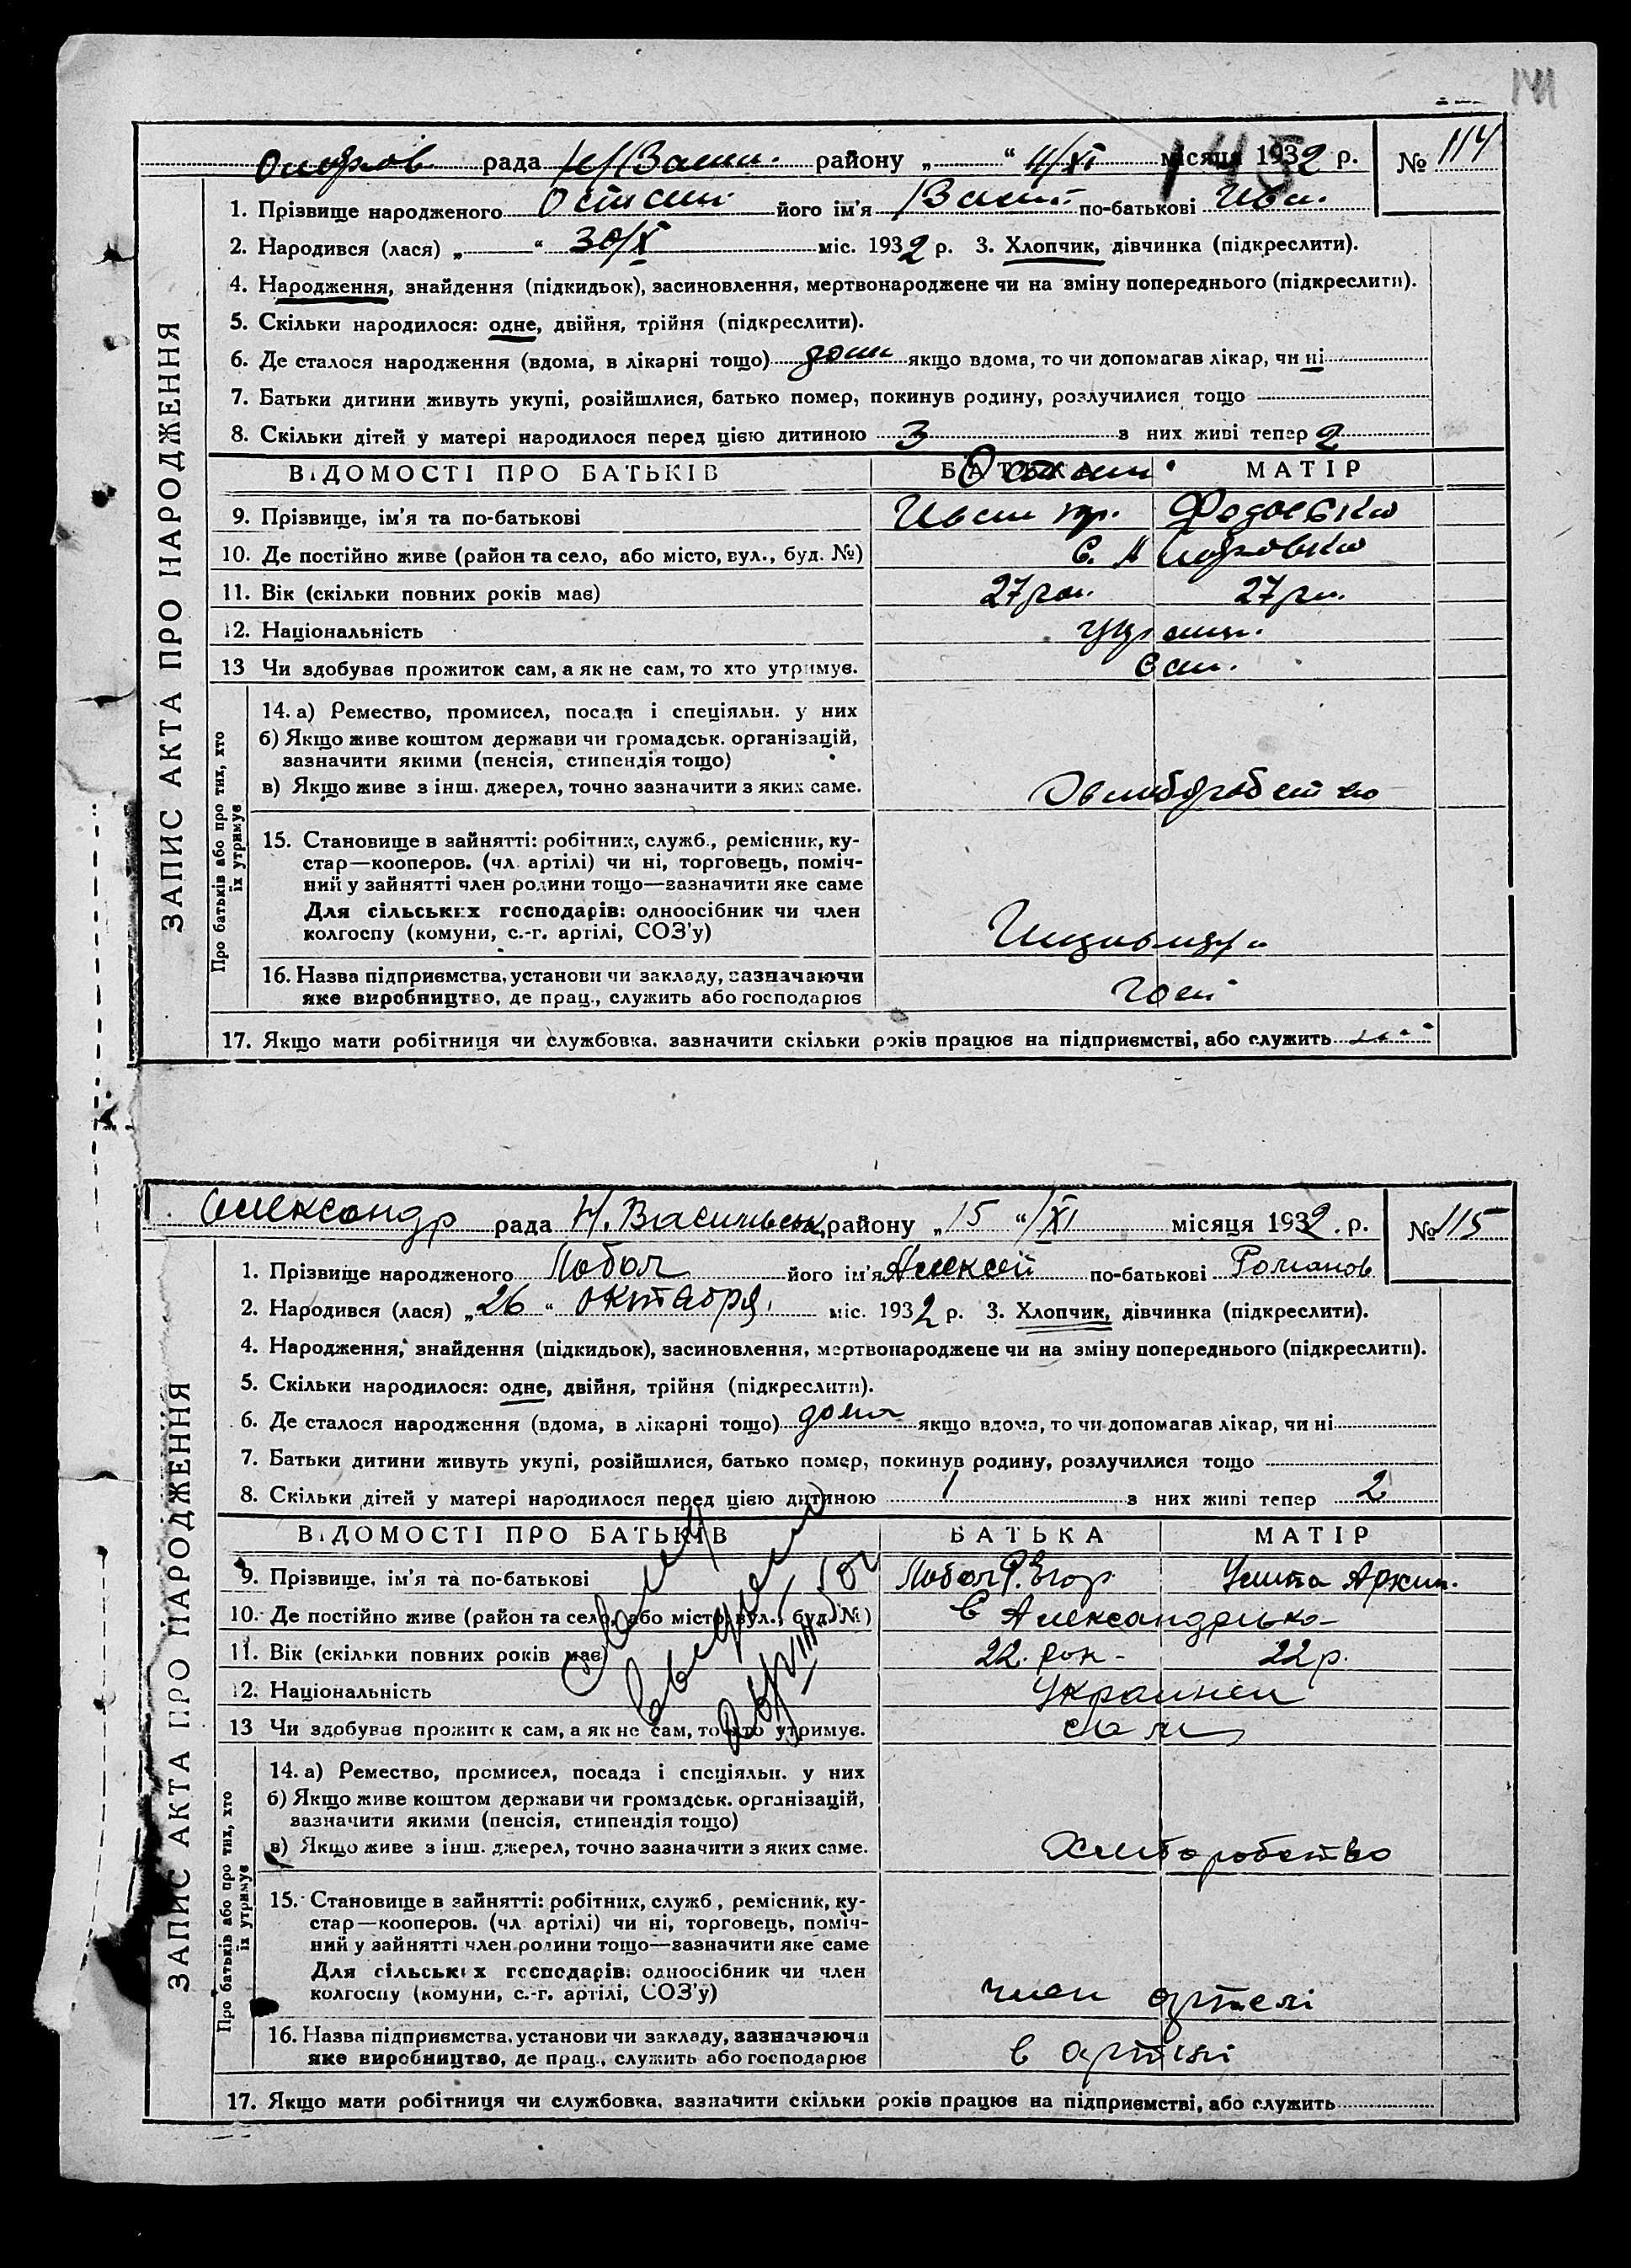 141
145
рада Н/Васил. району „ “ 4/XI місяця 1932 р. № 114
ЗАПИС АКТА ПРО НАРОДЖЕННЯ
1. Прізвище народженого Осташ. його ім'я Васил. по-батькові Ива.
2. Народився (лася) „ “ 30/X міс. 1932 р. 3. Хлопчик, дівчинка (підкреслити).
4. Народження, знайдення (підкидьок), засиновлення, мертвонароджене чи на зміну попереднього (підкреслити).
5. Скільки народилося: одне, двійня, трійня (підкреслити).
6. Де сталося народження (вдома, в лікарні тощо) дома якщо вдома, то чи допомагав лікар, чи ні
7. Батьки дитини живуть укупі, розійшлися, батько помер, покинув родину, розлучилися тощо
8. Скільки дітей у матері народилося перед цією дитиною 3 з них живі тепер 2
ВІДОМОСТІ ПРО БАТЬКІВ БАТЬКА МАТІР
Осташ.
9. Прізвище, ім'я та по-батькові Иван
10. Де постійно живе (район та село, або місто, вул., буд. №) С.
11. Вік (скільки повних років має) 27 рок. 27 рок.
12. Національність Украин.
13 Чи здобуває прожиток сам, а як не сам, то хто утримує. Сам.
Про батьків або про тих, хто їх утримує
14. а) Ремество, промисел, посада і спеціяльн. у них
б) Якщо живе коштом держави чи громадськ. організацій,
зазначити якими (пенсія, стипендія тощо)
в) Якщо живе з інш. джерел, точно зазначити з яких саме. Хлиборобство
15. Становище в зайнятті: робітник, служб., ремісник, ку-
стар—кооперов. (чл. артілі) чи ні, торговець, поміч-
ний у зайнятті член родини тощо—зазначити яке саме
Для сільських господарів: одноосібник чи член
колгоспу (комуни, с.-г. артілі, СОЗ'у)
16. Назва підприємства, установи чи закладу, зазначаючи
яке виробництво, де прац., служить або господарює
17. Якщо мати робітниця чи службовка, зазначити скільки років працює на підприємстві, або служить
Олександр рада Н. Васильевск. району „15“ XI місяця 1932 р. № 115
ЗАПИС АКТА ПРО НАРОДЖЕННЯ
1. Прізвище народженого Лобол його ім'я Алексей по-батькові Романов
2. Народився (лася) „26“ октября міс. 1932 р. 3. Хлопчик, дівчинка (підкреслити).
4. Народження, знайдення (підкидьок), засиновлення, мертвонароджене чи на зміну попереднього (підкреслити).
5. Скільки народилося: одне, двійня, трійня (підкреслити).
6. Де сталося народження (вдома, в лікарні тощо) дома якщо вдома, то чи допомагав лікар, чи ні
7. Батьки дитини живуть укупі, розійшлися, батько помер, покинув родину, розлучилися тощо
8. Скільки дітей у матері народилося перед цією дитиною 1 з них живі тепер 2
ВІДОМОСТІ ПРО БАТЬКІВ БАТЬКА МАТІР
9. Прізвище, ім'я та по-батькові Лобол Р. Егор. Улита Архип.
10. Де постійно живе (район та село, або місто, вул., буд. №) С Александрвка
11. Вік (скільки повних років має) 22. рок- 22 р.
12. Національність Украинци
13 Чи здобуває прожиток сам, а як не сам, то хто утримує. сами
Про батьків або про тих, хто їх утримує
14. а) Ремество, промисел, посада і спеціяльн. у них
б) Якщо живе коштом держави чи громадськ. організацій,
зазначити якими (пенсія, стипендія тощо)
в) Якщо живе з інш. джерел, точно зазначити з яких саме. Хлиборобство
15. Становище в зайнятті: робітник, служб., ремісник, ку-
стар—кооперов. (чл. артілі) чи ні, торговець, поміч-
ний у зайнятті член родини тощо—зазначити яке саме
Для сільських господарів: одноосібник чи член
колгоспу (комуни, с.-г. артілі, СОЗ'у) член артелі
16. Назва підприємства, установи чи закладу, зазначаючи
яке виробництво, де прац., служить або господарює в артілі
17. Якщо мати робітниця чи службовка, зазначити скільки років працює на підприємстві, або служить